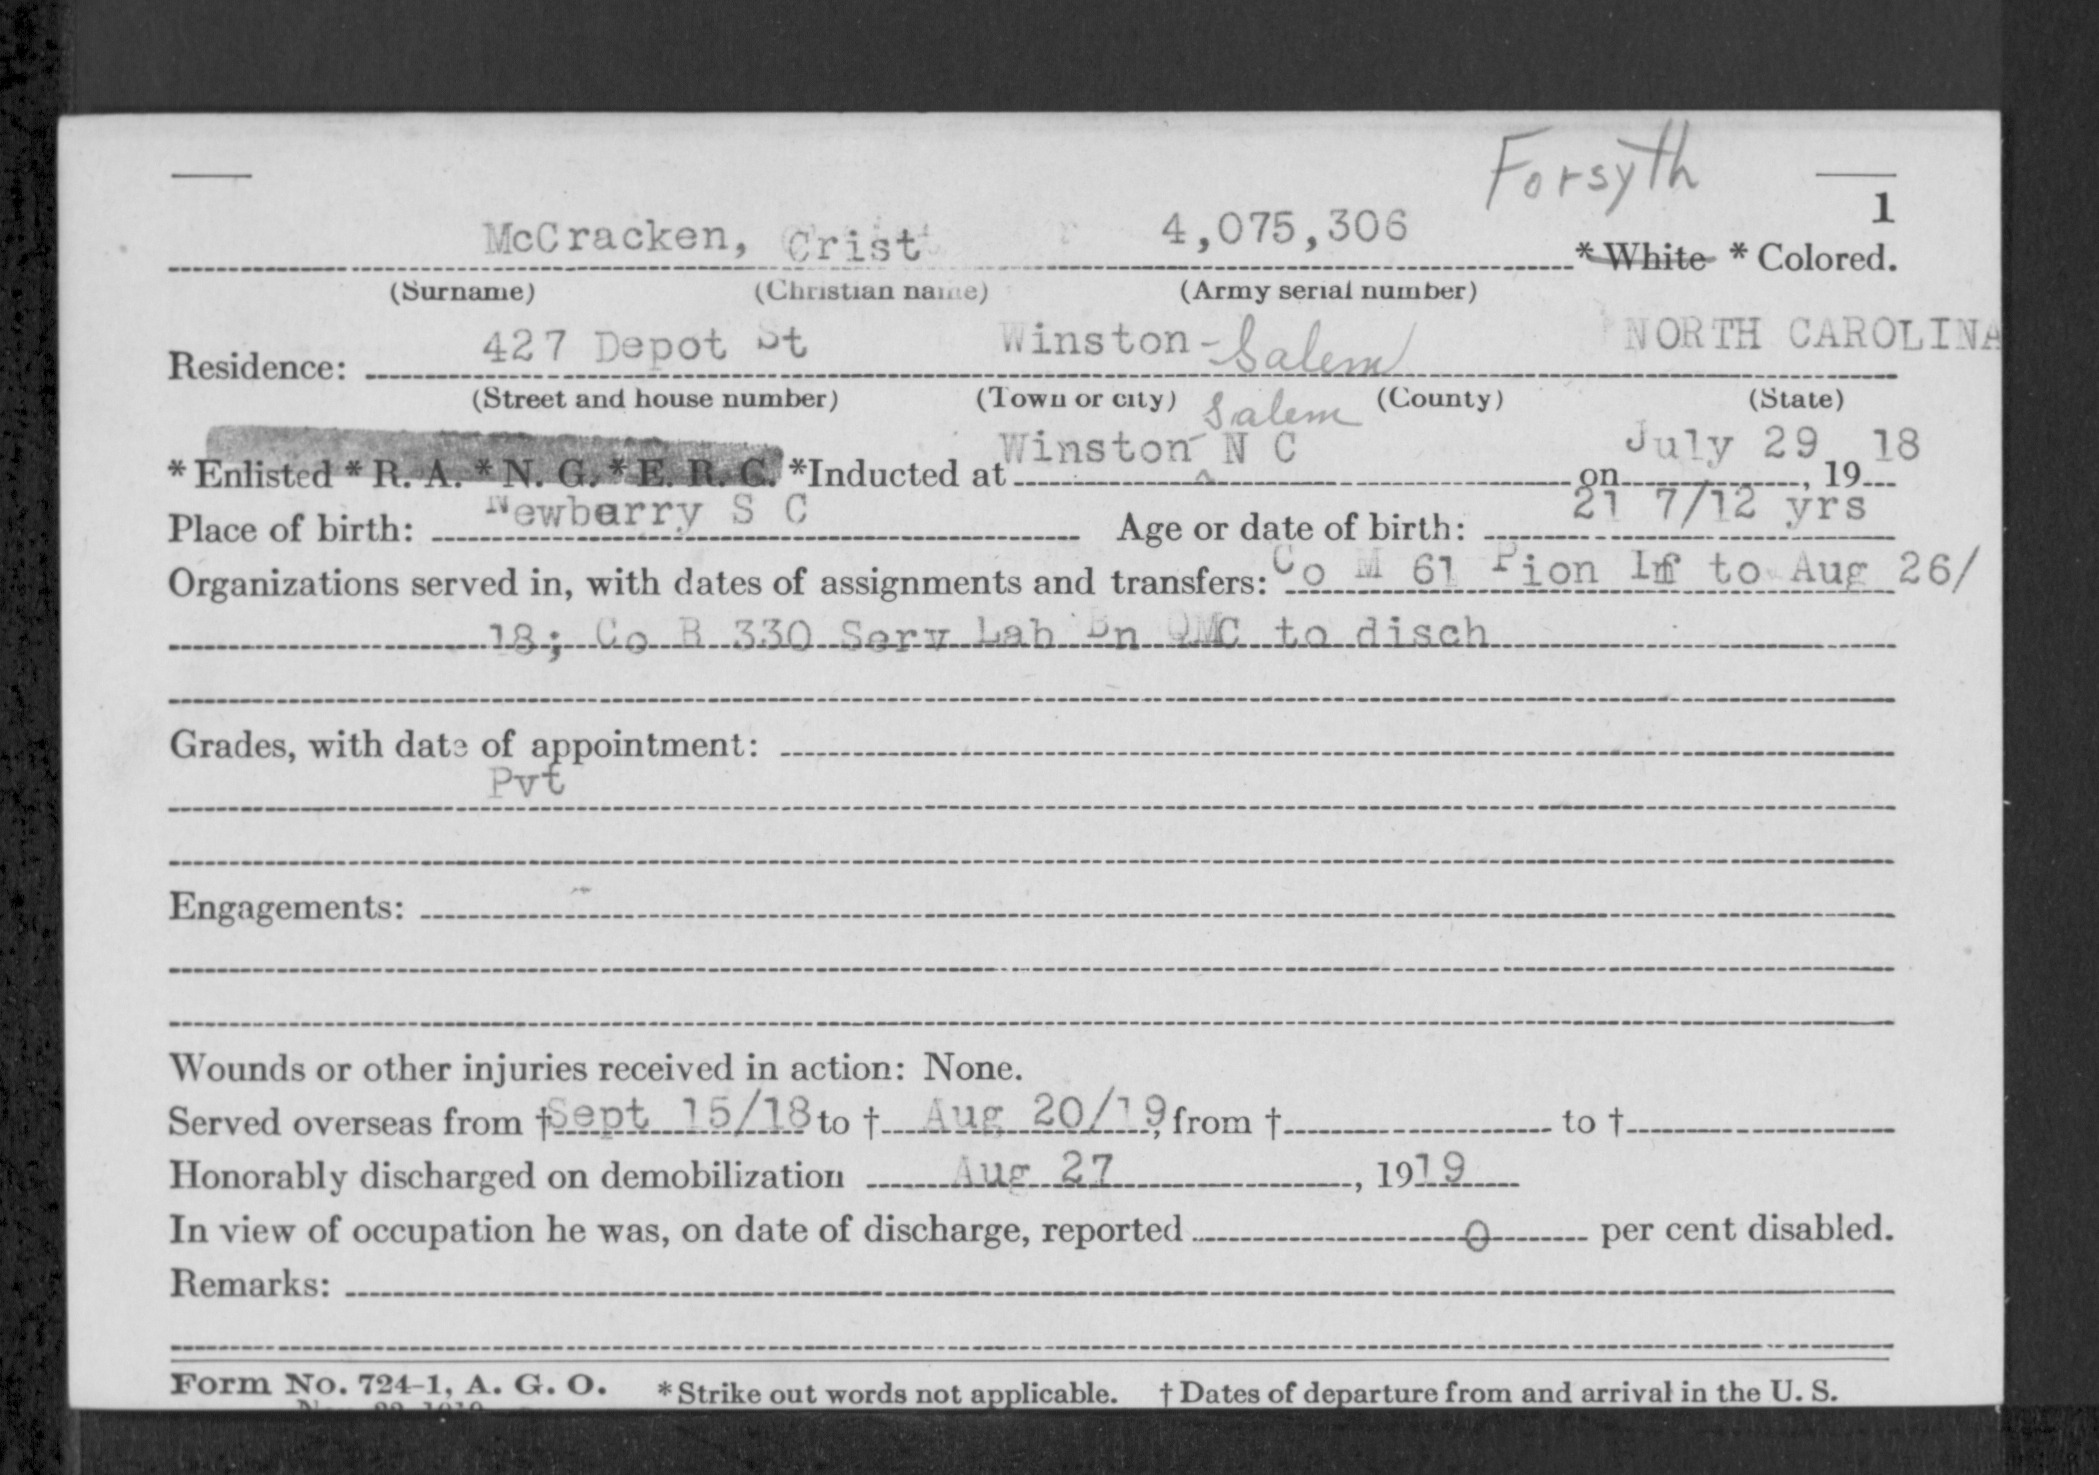 Forsyth
1
McCracken, Crist 4,075,306 * White * Colored.
(Surname) (Christian name) (Army serial number)
Residence: 427 Depot St Winston-Salem NORTH CAROLINA
(Street and house number) (Town or city) (County) (State)
Salem
* Enlisted * R. A. * N. G. * E. R. C. *Inducted at Winston- N C on July 29, 1918
Place of birth: Newberry S C Age or date of birth: 21 7/12 yrs
Organizations served in, with dates of assignments and transfers: Co M 61 Pion Inf to Aug 26/
18; Co B 330 Serv Lab Bn QMC to disch
Grades, with date of appointment:
Pvt
Engagements:
Wounds or other injuries received in action: None.
Served overseas from † Sept 15/18 to † Aug 20/19, from † to †
Honorably discharged on demobilization Aug 27, 1919
In view of occupation he was, on date of discharge, reported 0 per cent disabled.
Remarks:
Form No. 724-1, A. G. O. * Strike out words not applicable. † Dates of departure from and arrival in the U. S.